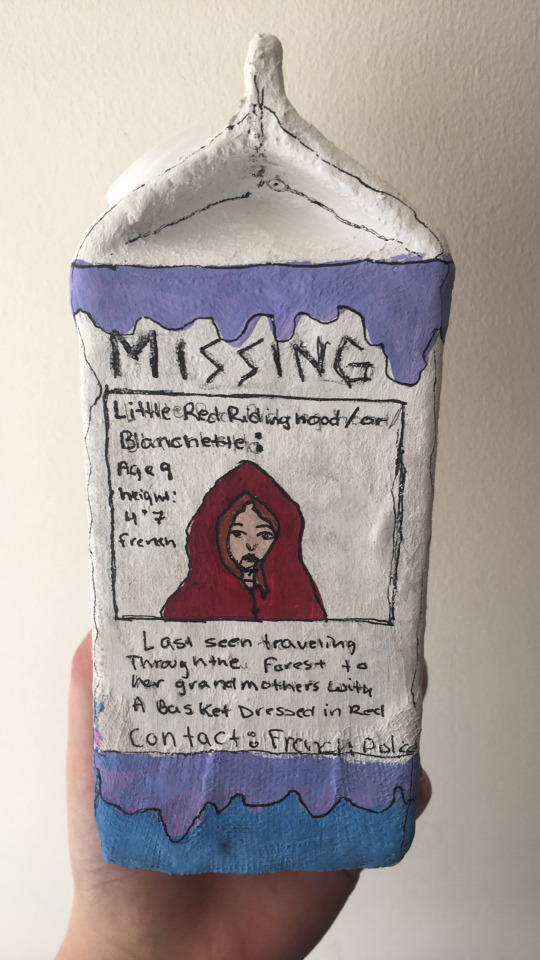 MISSING
Little Red Riding hood/or
Blanchette:
Age 9
height:
4"7
French
Last seen traveling
Through the Forest to
her grandmothers with
A Basket Dressed in Red
Contact: French Police